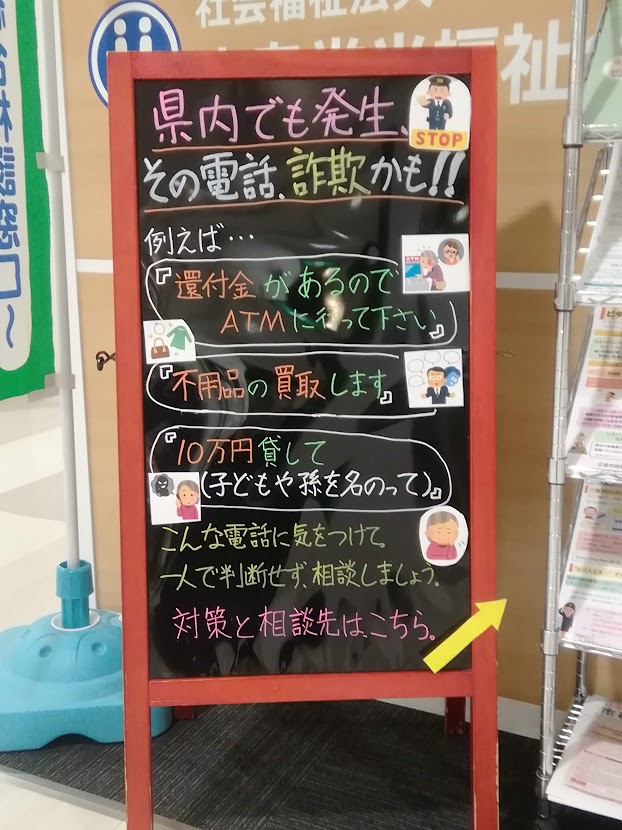 社会福祉法人
福祉
県内でも発生、
STOP
その電話、詐欺かも!!
例えば…
ATM
『還付金があるので
ATMに行って下さい』
『不用品の買取します』
『10万円貸して
(子どもや孫を名のって)』
こんな電話に気をつけて。
一人で判断せず、相談しましょう。
対策と相談先は、こちら。